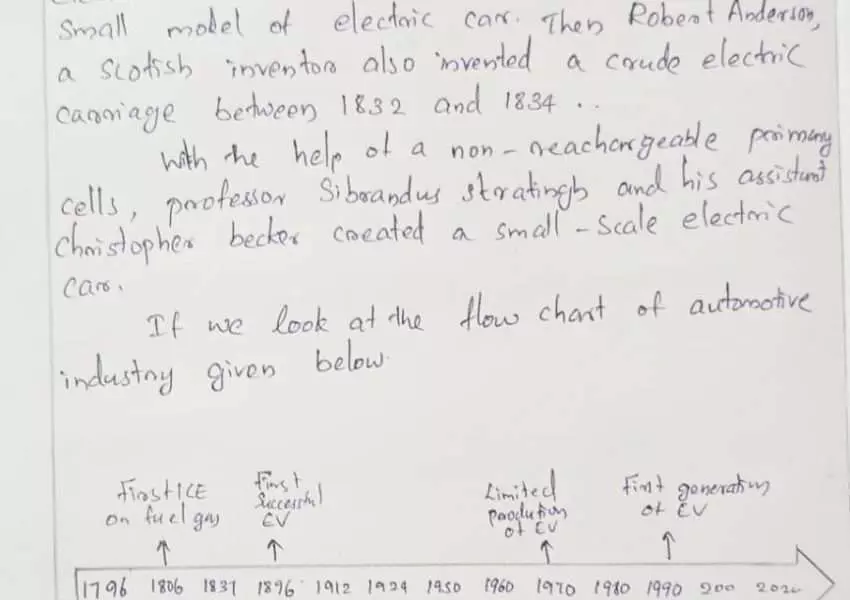 small model of electric car. Then Robert Anderson,
a scotish inventor also invented a crude electric
carriage between 1832 and 1834 ..
With the help of a non-reachargeable primary
cells, professor Sibrandus stratingh and his assistant
christopher becker created a small-scale electric
car.
If we look at the flow chart of automotive
industry given below.
First ICE
on fuel gas
First
Successful
EV
Limited
production
of EV
First generation
of EV
1796 1806 1837 1896 1912 1924 1950 1960 1970 1980 1990 200 2020